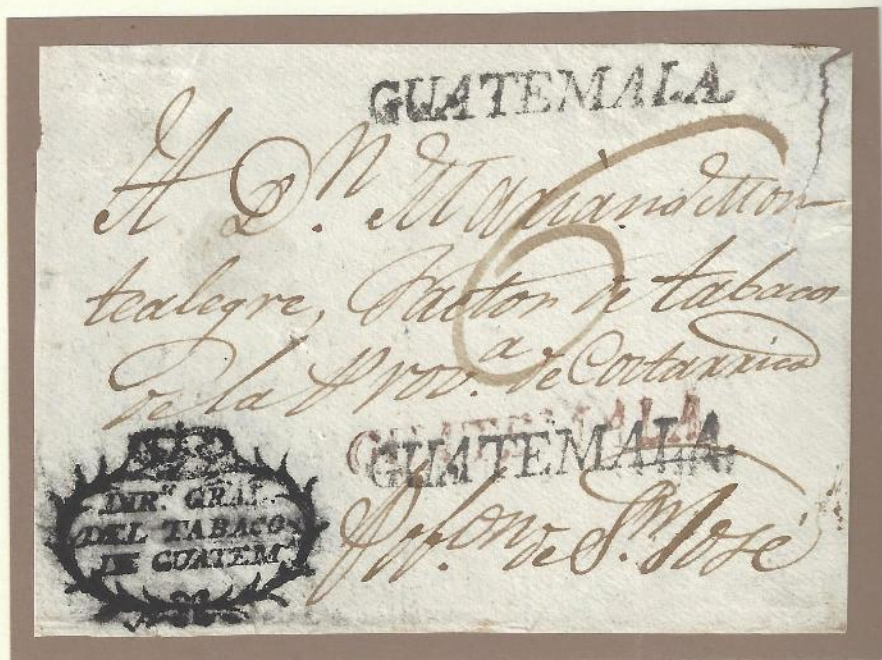 GUATEMALA
A D.n Mariano Mon-
tealegre, Factor de tabacos
de la Prov.a de Costarrica
GUATEMALA
GUATEMALA
DIR.n GRAL.
DEL TABACO
DE GUATEM.a
de S.n José
6